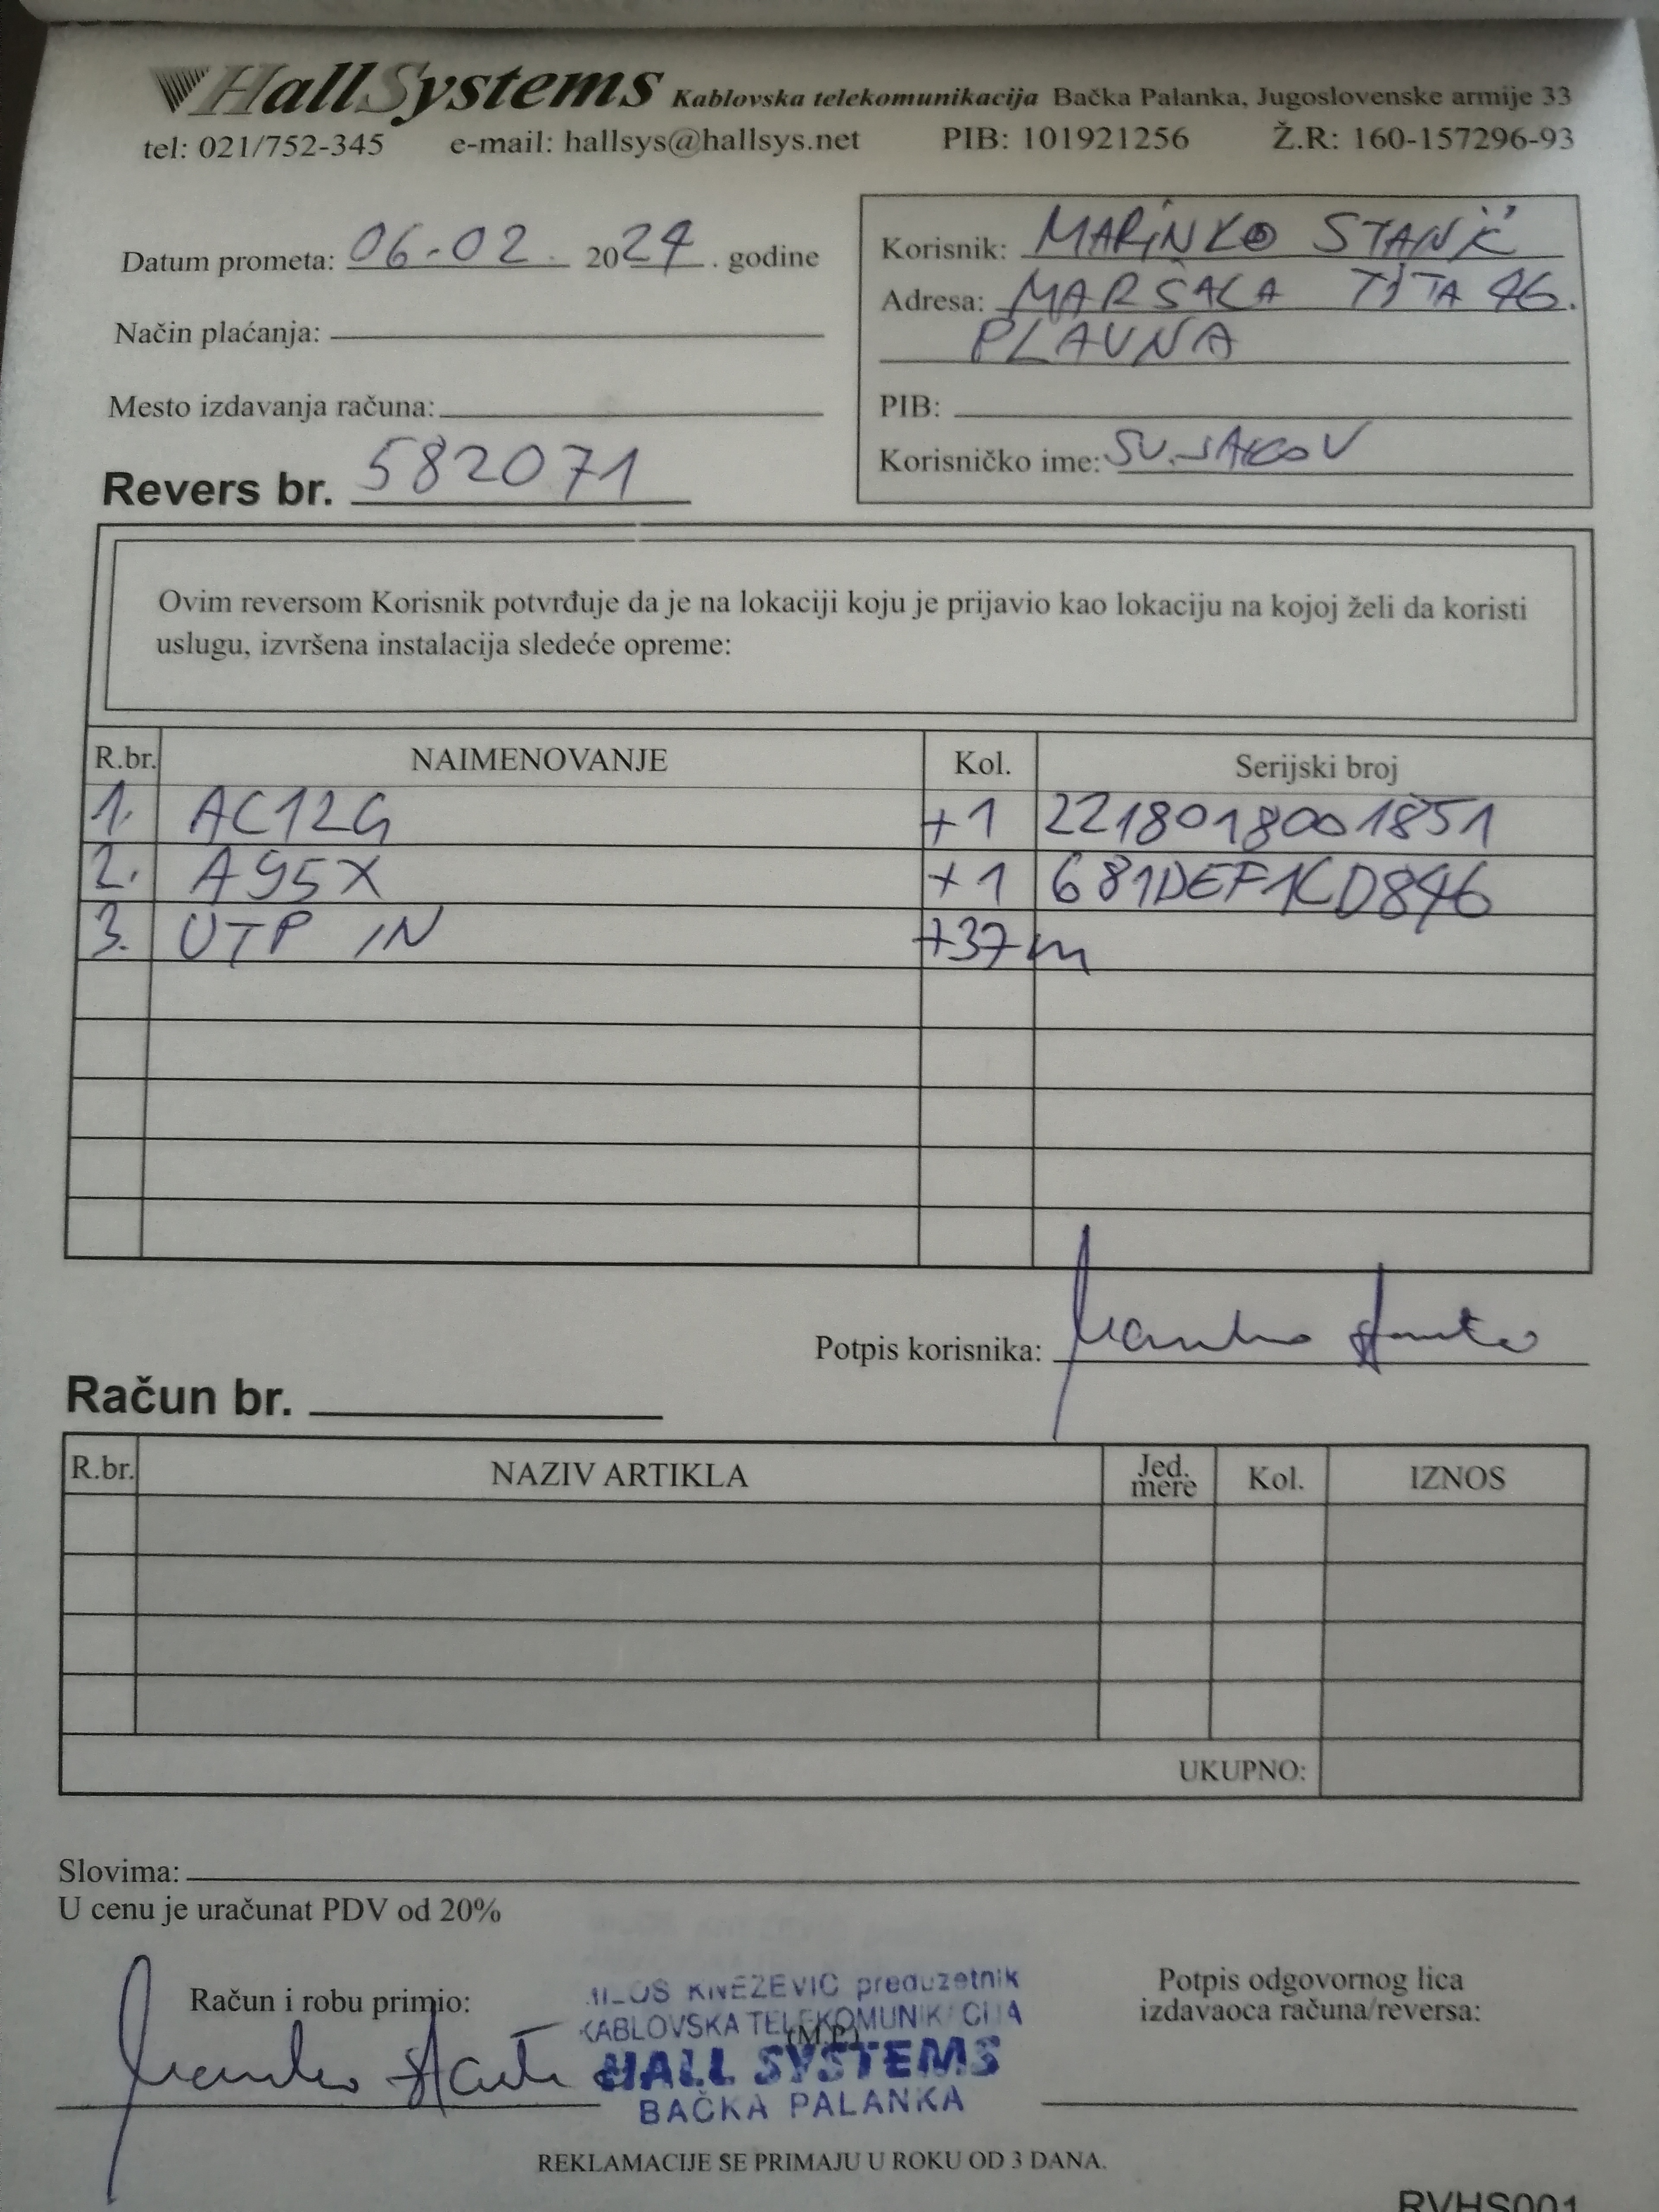 HallSystems Kablovska telekomunikacija Bačka Palanka, Jugoslovenske armije 33
tel: 021/752-345 e-mail: hallsys@hallsys.net PIB: 101921256 Ž.R: 160-157296-93
Datum prometa: 06-02. 2024. godine
Način plaćanja:
Mesto izdavanja računa:
Revers br. 582071
Korisnik: MARINKO STANIĆ
Adresa: MARŠALA TITA 46.
PLAVNA
PIB:
Korisničko ime: SV.JAKOV
Ovim reversom Korisnik potvrđuje da je na lokaciji koju je prijavio kao lokaciju na kojoj želi da koristi
uslugu, izvršena instalacija sledeće opreme:
R.br. NAIMENOVANJE Kol. Serijski broj
1. AC12G +1 2218018001851
2. A95X +1 681DEF1CD846
3. UTP IN +37m
Potpis korisnika:
Račun br.
R.br. NAZIV ARTIKLA Jed. mere Kol. IZNOS
UKUPNO:
Slovima:
U cenu je uračunat PDV od 20%
Račun i robu primio:
KNEŽEVIĆ preduzetnik
KABLOVSKA TELEKOMUNIKACIJA
(M.P.)
HALL SYSTEMS
BAČKA PALANKA
Potpis odgovornog lica
izdavaoca računa/reversa:
REKLAMACIJE SE PRIMAJU U ROKU OD 3 DANA.
RVHS001